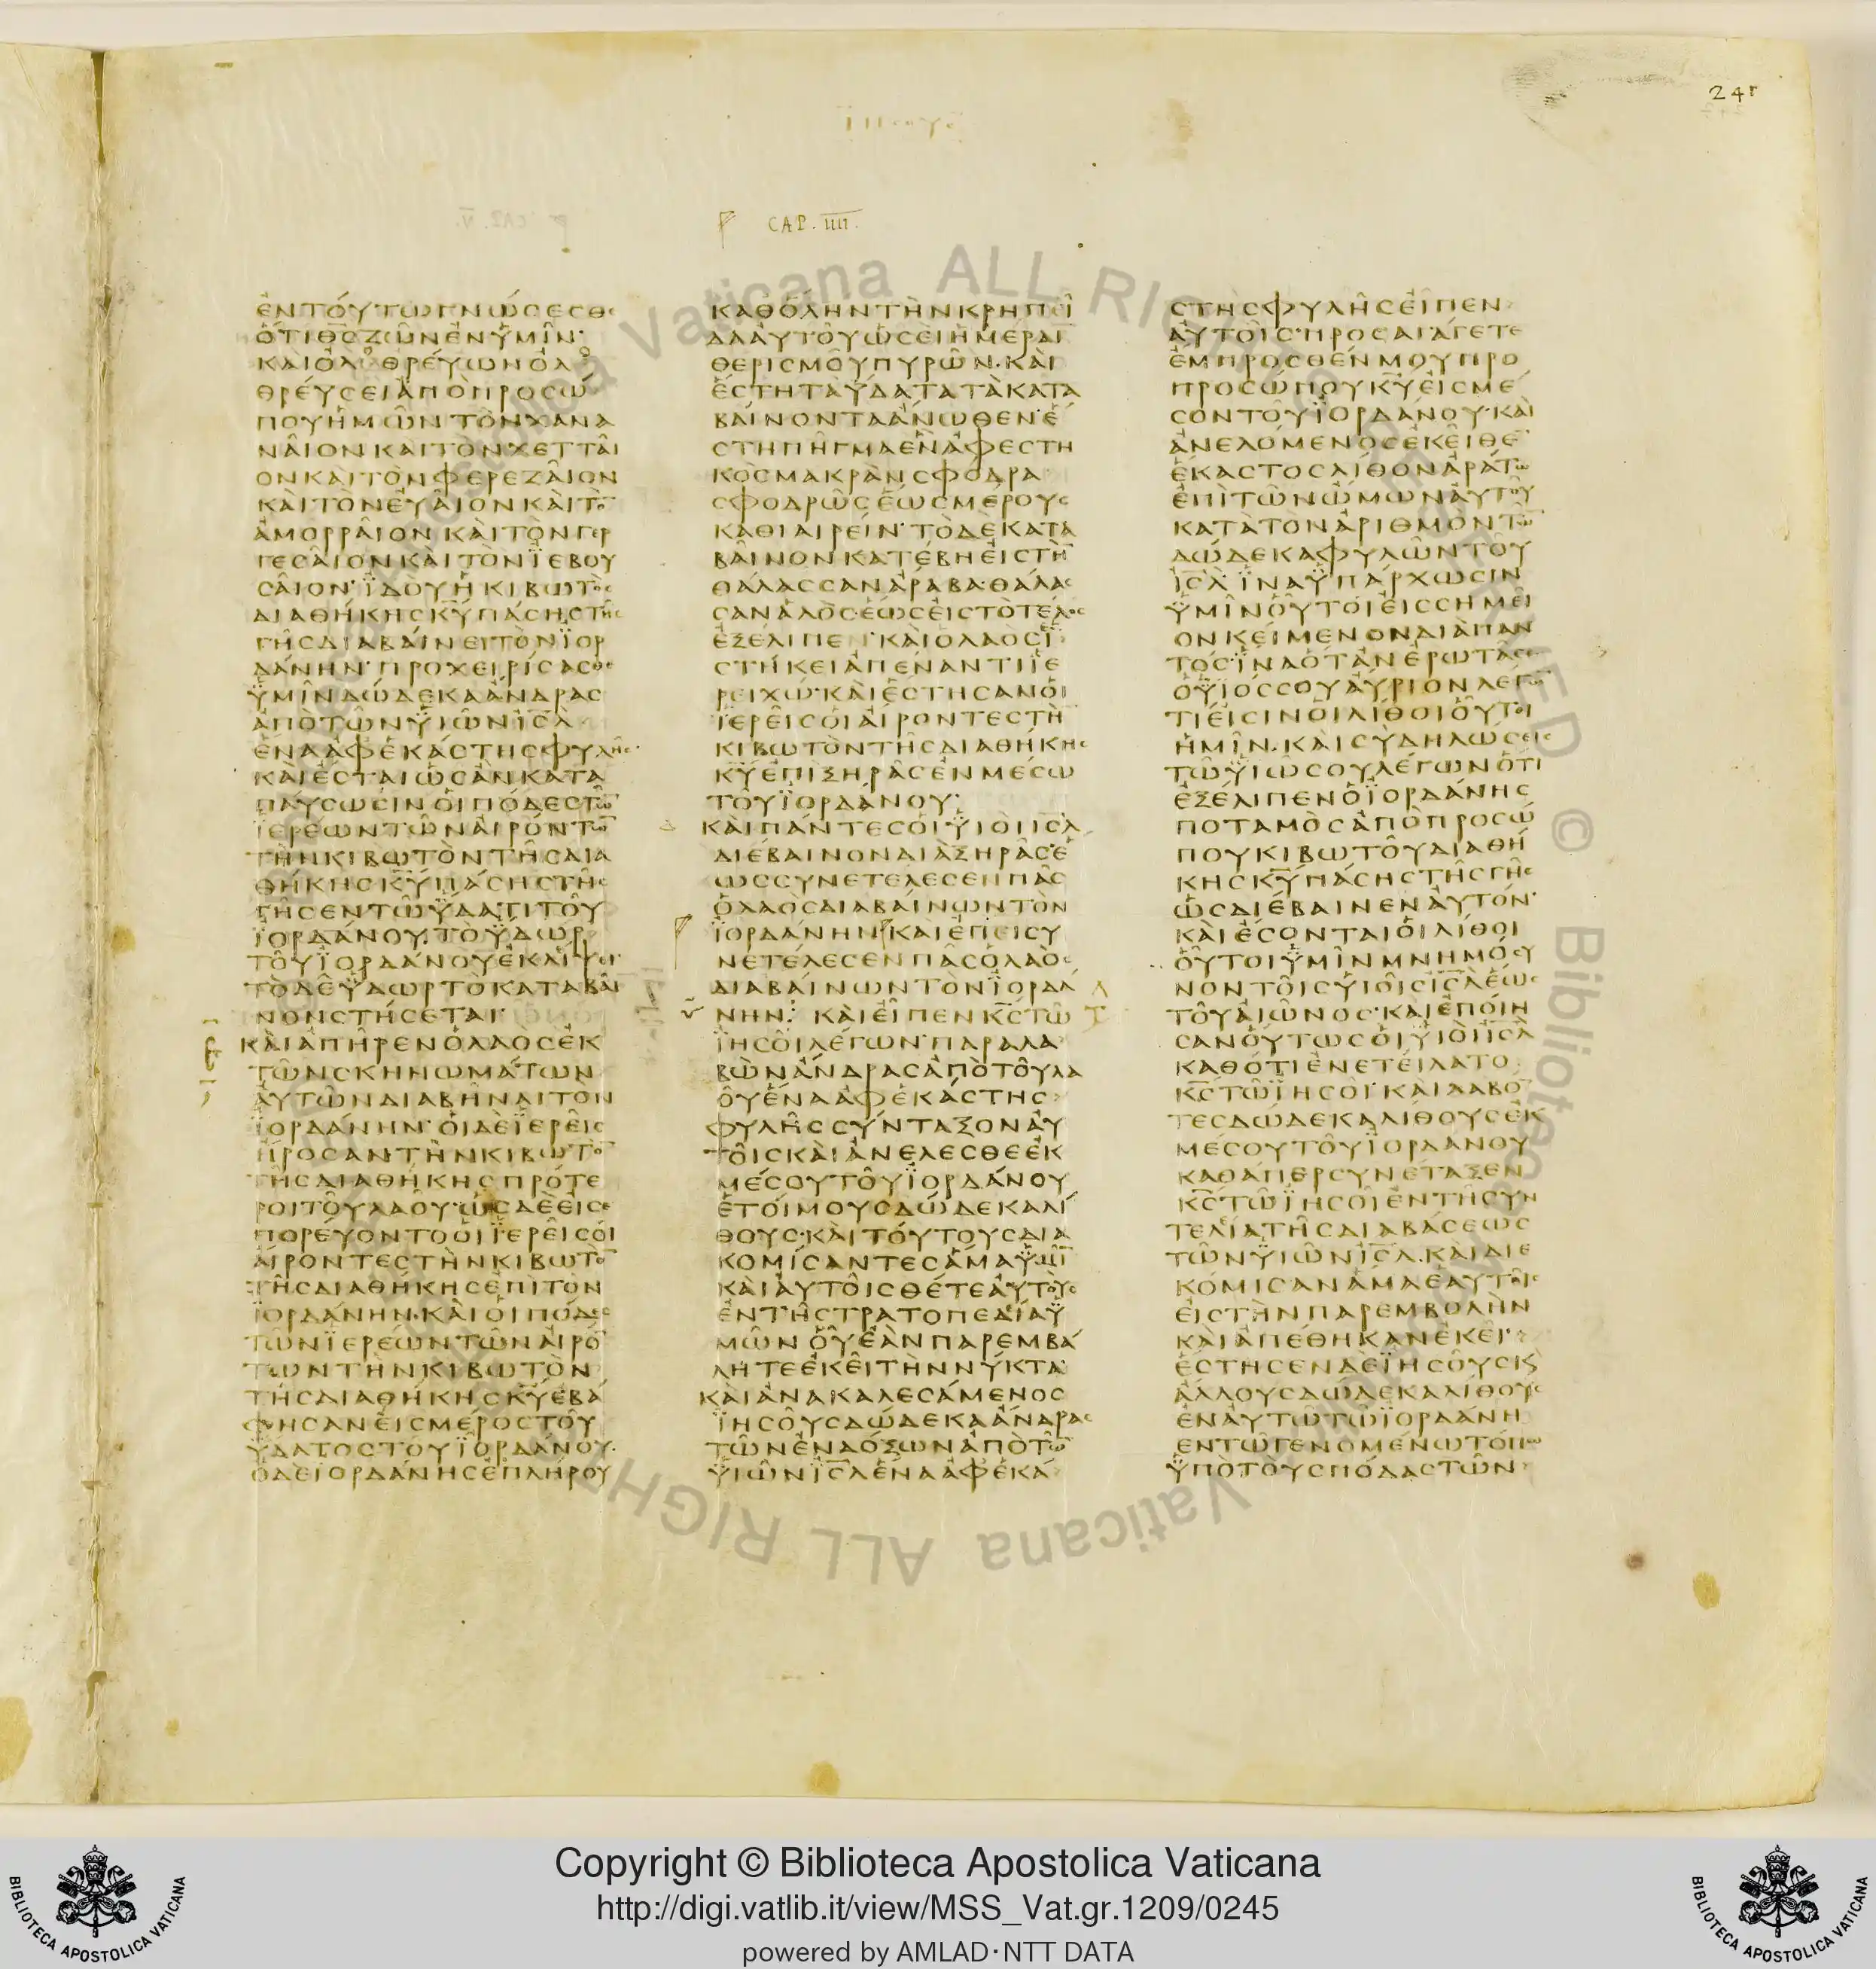 24r
Ἰησους
CAP. IIII.
ἐντούτωγνώσεσθε
ὅτιθ̅ς̅ζῶνἐνὑμῖν·
καιὀλοθρέυωνὀλο
θρέυσειἀπὸπροσώ
πουἡμῶντὸνχανα
νᾶιονκαιτὸνχετταῖ
ονκαὶτὸνφερεζᾶιον
κὰιτὸνἑυᾶιονκὰιτὸ̅
ἀμορρᾶιονκὰιτὸνγερ
γεσᾶιονκὰιτὸνϊεβου
σᾶιον·ϊδὸυἡκιβωτὸς
διαθήκηςκ̅υ̅πάσηςτῆς
γῆςδιαβάινειτὸνϊορ
δάνην·προχειρίσασθε
ὑμῖνδώδεκαἄνδρας
ἀπὸτῶνϋιῶνι̅σ̅λ̅
ἕναἀφἑκάστηςφυλῆς·
κὰιἔσταιὡςἂνκατα
πάυσωσινὁιπόδεςτῶ̅
ϊερέωντῶνἀιρόντω̅
τὴνκιβωτὸντῆςδια
θήκηςκ̅υ̅πάσηςτῆς
γῆςεντῶϋδατιτοῦ
ϊορδάνου.τὸϋδωρ
τοῦϊορδάνουἐκλίψει·
τὸδὲϋδωρτὸκαταβᾶι
νονστήσεται·
κὰιἀπῆρενὁλαὸςἐκ
τῶνσκηνωμάτων
ἀυτῶνδιαβῆναιτον
ϊορδάνην·ὁιδὲϊερεῖς
ἤροσαντὴνκιβωτὸ̅
τῆςδιαθήκηςπρότε
ροιτοῦλαοῦ·ὡςδὲἐισε
πορέυοντοὁιϊερεῖςὁι
ἄιροντεςτὴνκιβωτὸ̅
τῆςδιαθήκηςἐπὶτὸν
ϊορδάνην·κὰιὁιπόδες
τῶνϊερέωντῶνἀιρό̅
τωντὴνκιβωτὸν
τῆςδιαθήκηςκ̅υ̅ἐβά
φησανἐιςμέροςτοῦ
ὕδατοςτοῦϊορδάνου·
ὁδὲϊορδάνηςἐπλήρου
καθὅληντὴνκρηπεῖ
δααὐτοῦὡσὲιἡμέραι
θερισμοῦπυρῶν·κὰι
ἔστηταϋδατατὰκατα
βάινονταἄνωθεν·ἔ
στηπῆγμαἓνἀφεστη
κὸςμακρὰνσφόδρα
σφοδρῶςἕωςμέρους
καθιαιρείν·τὸδὲκατα
βᾶινονκατέβηἐιςτὴ̅
θάλασσανἀραβα·θάλασ
σανἁλὸς·ἕωςἐιςτὸτελος
ἐξέλιπεν·κὰιὁλαὸςἱ
στήκειἀπέναντιϊε
ρειχώ·κὰιἔστησανὁι
ϊερεῖςὁιἄιροντεςτὴ̅
κιβωτὸντῆςδιαθήκης
κ̅υ̅ἐπιξηρᾶςἐνμέσω
τοῦϊορδάνου·
κὰιπάντεςὁιϋιὸιι̅σ̅λ̅
διέβαινονδιὰξηρᾶςἕ
ωςσυνετέλεσενπᾶς
ὁλαὸςδιαβάινωντὸν
ϊορδάνηνκὰιἐπεισυ
νετέλεσενπᾶςὁλαὸς
διαβάινωντὸνϊορδά
νην:κὰιεἶπενκ̅ς̅τῶ
ϊησοῖλέγων·παραλα
βὼνἄνδραςἀπὸτοῦλα
οῦἕναἀφἑκάστης
φυλῆςσύνταξοναὐ
τοῖςκὰιἀνέλεσθεἐκ
μέσουτοῦϊορδάνου
ἑτοίμουςδώδεκαλί
θους·κὰιτούτουςδια
κομίσαντεςἅμαϋμῖ̅
κὰιἀυτοῖςθέτεἀυτοὺς
ἐντῆστρατοπεδείαϋ
μῶνοὗἐὰνπαρεμβά
λητεἐκεῖτὴννύκτα·
κὰιἀνακαλεσάμενος
ϊησοῦςδώδεκαἄνδρας
τῶνἐνδόξωνἀπὸτῶ̅
ϋιῶνι̅σ̅λ̅ἕναἀφἑκά
στηςφυλῆςεἶπεν
ἀυτοῖς·προσαγάγετε
ἔμπροσθένμουπρο
προσώπουκ̅υ̅ἐιςμέ
σοντοῦϊορδάνου·κὰι
ἀνελόμενοςἐκεῖθε̅
ἕκαστοςλίθονἀράτω
ἐπὶτῶνὤμωναὐτοῦ
κατὰτὸνἀριθμὸντῶ̅
δώδεκαφυλῶντοῦ
ι̅σ̅λ̅ϊναϋπάρχωσιν
ϋμῖνοὗτοιἐιςσημεῖ
ονκείμενονδιὰπαν
τός·ϊναὅτανἐρωτᾶσε
ὁϋϊόςσουἄυριονλέγω̅
τίἐισινὁιλίθοιοὗτοι
ἡμῖν.κὰισὺδηλώσεις
τῶϋἱῶσουλέγωνὅτι
ἐξέλιπενὁϊορδάνης
ποταμὸςἀπὸπροσώ
πουκιβωτοῦδιαθή
κηςκ̅υ̅πάσηςτῆςγῆς
ὡςδιέβαινενἀυτόν·
κὰιἔσονταιὁιλίθοι
οὗτοιϋμῖνμνημόσυ
νοντοῖςυἱοῖςι̅σ̅λ̅ἕως
τοῦἀιῶνος·κὰιἐποίη
σανὅυτωςὁιϋιὸιι̅σ̅λ̅
καθότιἐνετείλατο
κ̅ς̅τῶϊησοῖ·κὰιλαβό̅
τεςδώδεκαλίθουςἐκ
μέσουτοῦϊορδάνου
καθάπερσυνέταξεν
κ̅ς̅τῶϊησοῖἐντῆσυν
τελείατῆςδιαβάσεως
τῶνϋιῶνι̅σ̅λ̅.κὰιδιε
κόμισανἅμαἑαυτοῖς
ἐιςτὴνπαρεμβολὴν
κὰιἀπέθηκανἐκεῖ·
ἔστησενδὲϊησοῦςκ̀
ἄλλουςδώδεκαλίθους
ἐναὐτῶτῶϊορδάνη
ἐντῶγενομένωτόπω
ὑπὸτοὺςπόδαςτῶν
Copyright © Biblioteca Apostolica Vaticana
http://digi.vatlib.it/view/MSS_Vat.gr.1209/0245
powered by AMLAD·NTT DATA
BIBLIOTECA APOSTOLICA VATICANA
BIBLIOTECA APOSTOLICA VATICANA